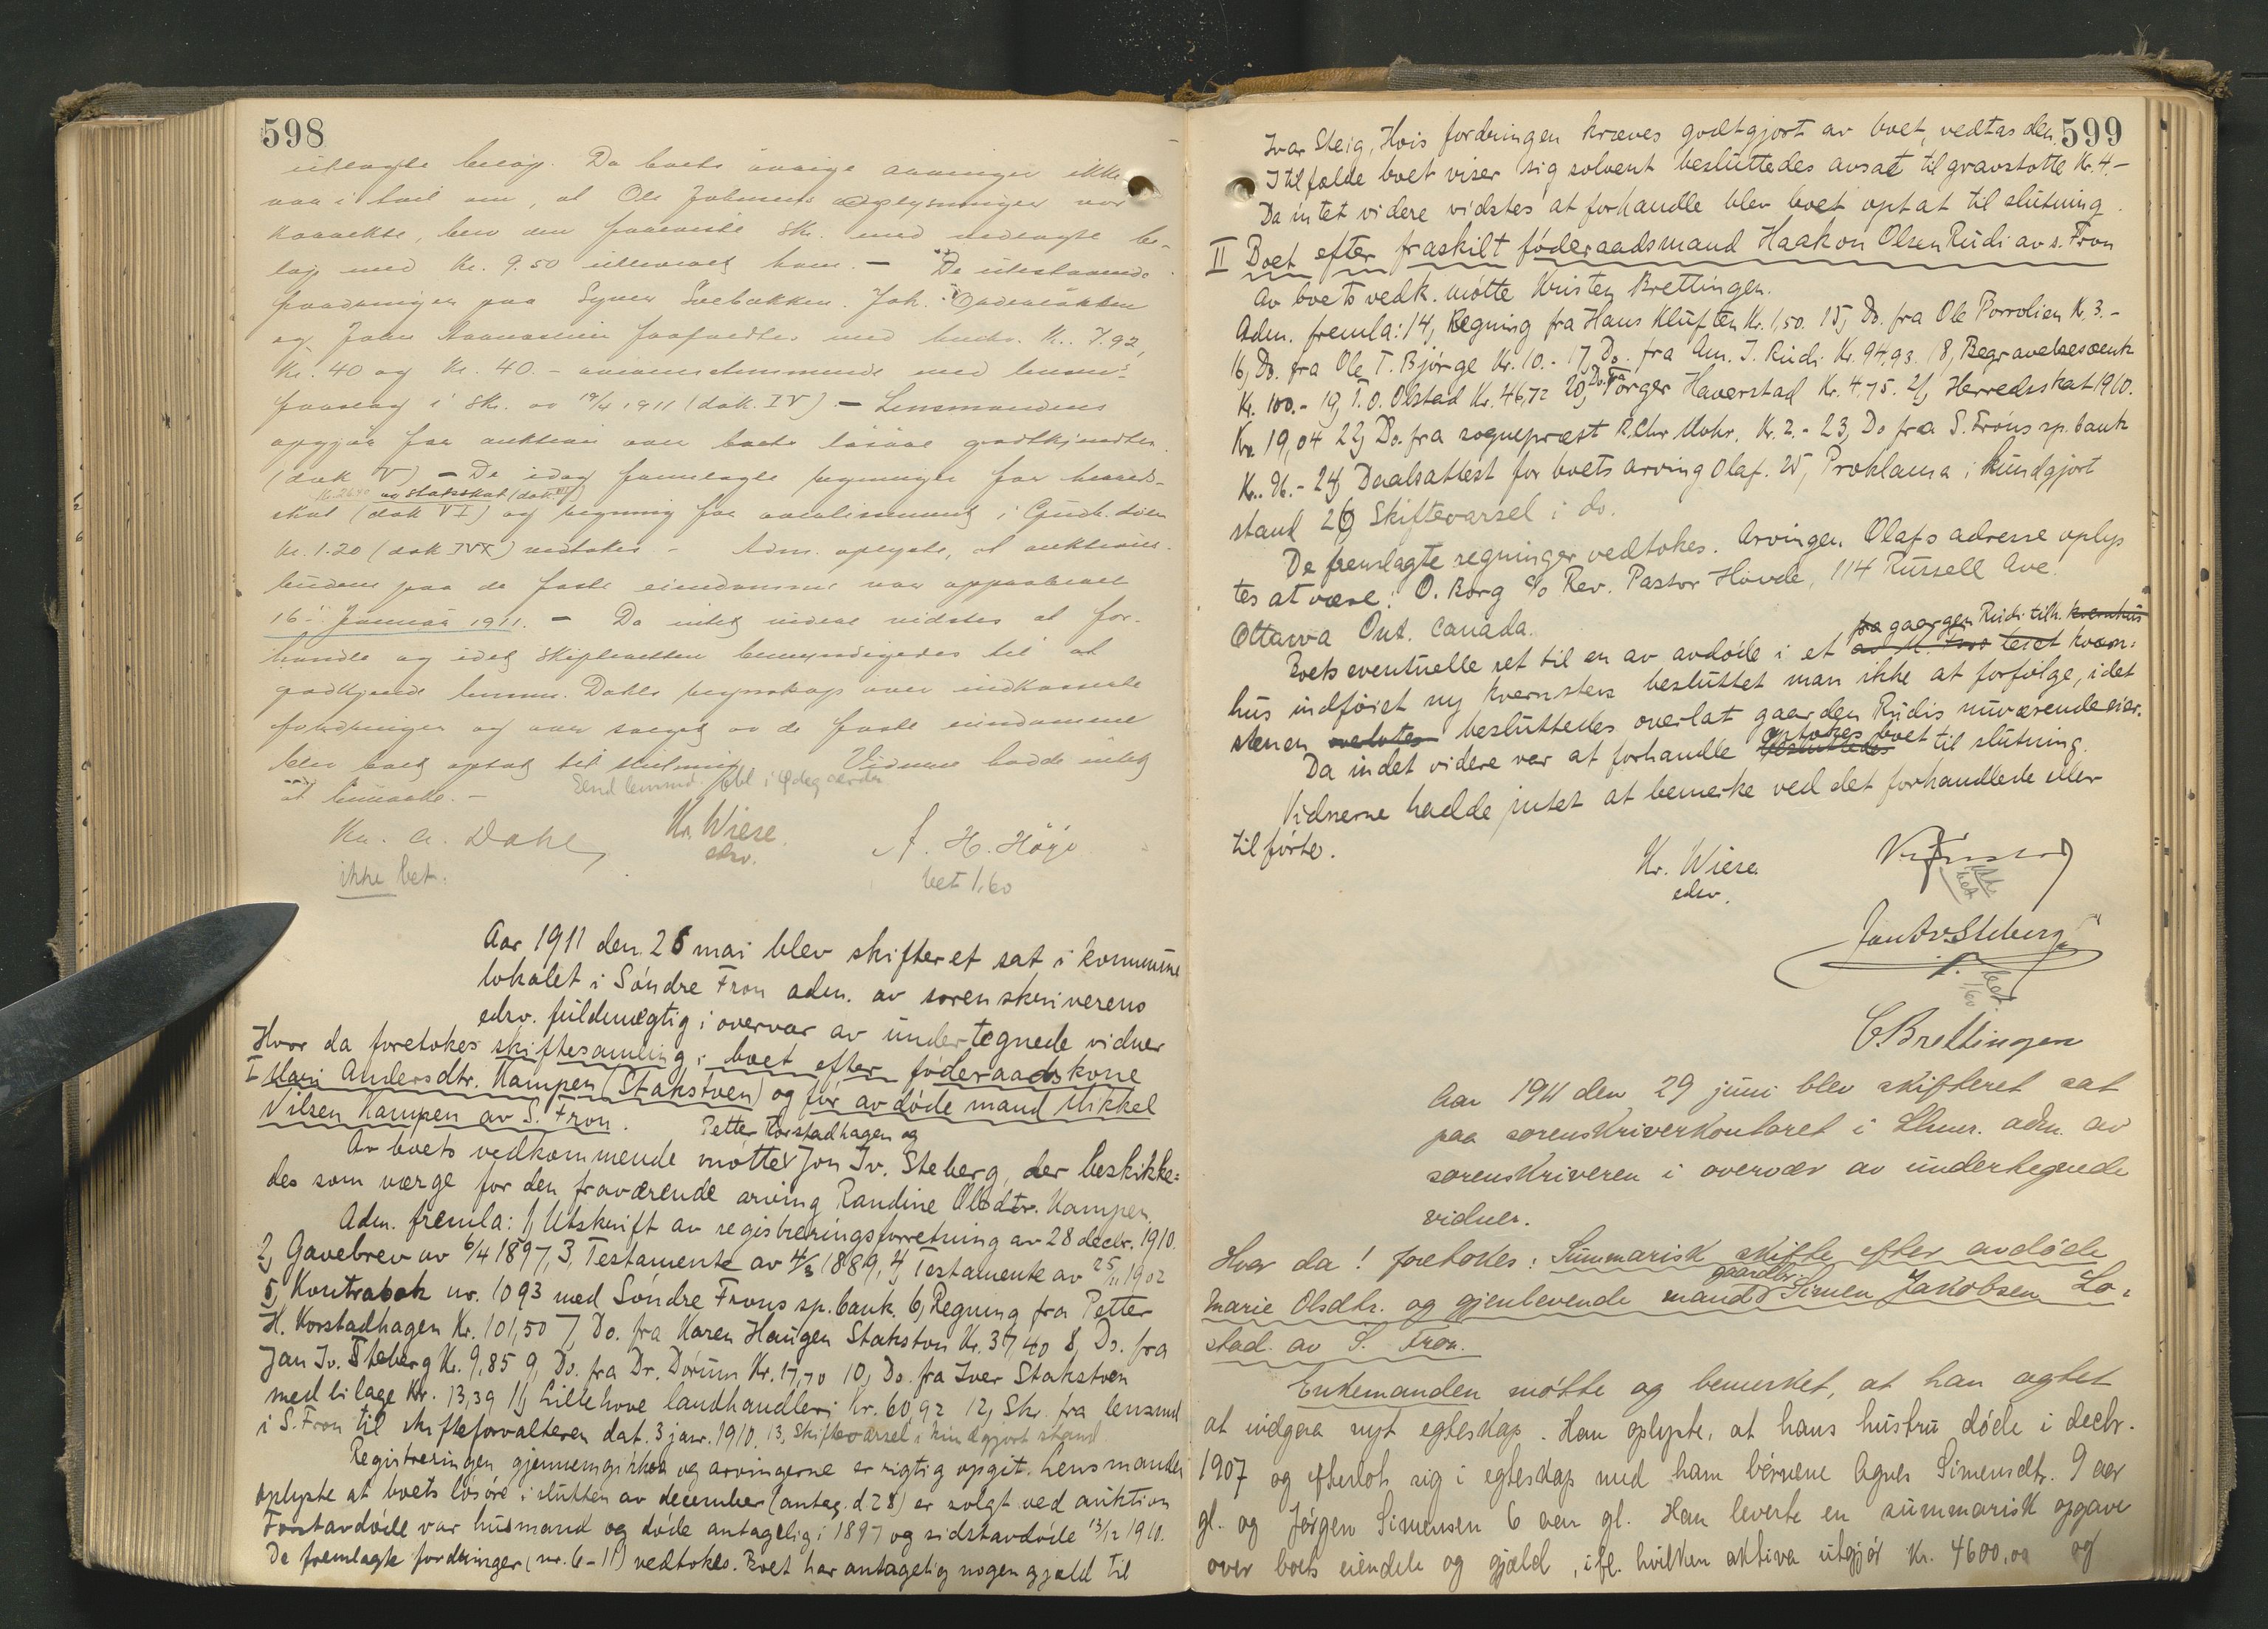 598
utlagte beløp. Da boets øvrige arvinger ikke
var i tvil om, at Ole Johnsens oplysninger var
korrekte, blev den foreviste skr. med vedlagte be-
løp med Kr. 9.50 utleveret ham. - De utestaaende
fordringer paa Syver Joh.
og med Kr. 7.92,
Kr. 40 og Kr. 40.- overensstemmende med lensm.s
forslag i skr. av 19/4 1911 (dok. IV). - Lensmandens
opgjør for auktion over boets løsøre godkjendtes
(dok V) - De idag fremlagte regninger for herreds-
og statsskat (dok VII)
skat (dok VI) og regning for avertissement i Gudb.dølen
Kr. 1.20 (dok IVX) vedtokes - Adm. oplyste, at auktions-
budene paa de faste eiendomme var approberet
16de Januar 1911. - Da intet videre vidstes at for-
handle og idet skifteretten bemyndigedes til at
godkjende lensm. Dahls regnskap over indkasserte
fordringer og over salget av de faste eiendomme
blev boet optat til slutning. Vidnene hadde intet
at bemerke. -
Kr. A. Dahl Kr. Wiese A. H. Høye
edsv.
ikke bet. bet 1,60
Aar 1911 den 26 mai blev skifteret sat i kommune
lokalet i Søndre Fron adm. av sorenskriverens
edsv. fuldmægtig i overvær av undertegnede vidner
Hvor da foretokes skiftesamling i boet efter føderaadskone
I Mari Andersdtr. Kampen (Stakstven) og før avdøde mand Mikkel
Nilsen Kampen av S. Fron.
Petter Korstadhagen og
Av boets vedkommende møtte Jon Iv. Steberg, der beskikke=
des som værge for den fraværende arving Randine Olsdtr. Kampen.
Adm. fremla: 1, Utskrift av registreringsforretning av 28 decbr. 1910.
2, Gavebrev av 6/4 1897, 3, Testamente av 4/3 1889, 4, Testamente av 25/11 1902
5, Kontrabok nr. 1093 med Søndre Frons sp.bank. 6, Regning fra Petter
H. Korstadhagen Kr. 101,50 7, Do. fra Karen Haugen Stakston Kr. 37 40 8, Do. fra
Jon Iv. Steberg Kr. 9,85 9, Do. fra Dr. Dørum Kr. 17,70 10, Do. fra Iver Stakstven
med bilage Kr. 13,39 11, Lillehove landhandleri Kr. 60,92 12, Skr. fra lensmd
i S. Fron til skifteforvalteren dat. 3 janr. 1910. 13, Skiftevarsel i kundgjort stand
Registreringen gjennemgikkes og arvingerne er rigtig opgit. Lensmanden
oplyste at boets løsøre i slutten av december (antag. d 28) er solgt ved auktion
Førstavdøde var husmand og døde antagelig i 1897 og sidstavdøde 13/12 1910.
De fremlagte fordringer (nr. 6-11) vedtokes. Boet har antagelig nogen gjæld til
599
Ivar Steig. Hvis fordringen kræves godtgjort av boet, vedtas den.
I tilfælde boet viser sig solvent besluttedes avsat til gravstøtte Kr. 4-
Da intet videre vidstes at forhandle blev boet optat til slutning.
II Boet efter fraskilt føderaadsmand Haakon Olsen Rudi av s. Fron
Av boets vedk. møtte Kristen Brettingen.
Adm. fremla: 14, Regning fra Hans Kluften Kr. 1,50. 15, Do. fra Ole Porrolien K. 3.-
16, Do. fra Ole T. Bjørge Kr. 10.- 17, Do. fra Am. J. Rudi Kr. 94,93. 18, Begravelsesomk
Kr. 100.- 19, T. O. Olstad Kr. 46,72 20, Do. fra Torger Haverstad Kr. 4,75. 21, Herredsskat 1910.
Kr. 19,04 22, Do. fra sogneprest R. Chr Mohr. Kr. 2.- 23, Do fra S. Frons sp.bank
Kr. 96.- 24, Daabsattest for boets arving Olaf. 25, Proklama i kundgjort
stand 26, Skiftevarsel i do.
De fremlagte regninger vedtokes. Arvingen Olafs adresse oplys
tes at være: O. Borg c/o Rev. Pastor Hovde, 114 Russell Ave.
Ottawa Ont. Canada.
fra gaarden Rudi tilh. kvernhus
Boets eventuelle ret til en av avdøde i et kvern=
hus indføiet ny kvernsten besluttet man ikke at forfølge, idet
stenen overlotes besluttedes overlat gaarden Rudis nuværende eier.
optokes boet
Da indet videre var at forhandle besluttedes til slutning.
Vidnerne hadde intet at bemerke ved det forhandlede eller
tilførte.
Kr. Wiese
edsv.
ikke bet
Jon Iv. Steberg
bet 1,60
C. Brettingen
Aar 1911 den 29 juni blev skifteret sat
paa sorenskriverkontoret i Lhmr. adm. av
sorenskriveren i overvær av undertegnede
vidner.
Hvor da! foretokes: Summarisk skifte efter avdøde
gaardbr.
Marie Olsdtr. og gjenlevende mand Simen Jakobsen Lo=
stad av S. Fron.
Enkemanden møtte og bemerket, at han agtet
at indgaa nyt egteskap. Han oplyste, at hans hustru døde i decbr.
1907 og efterlot sig i egteskap med ham børnene Agnes Simensdtr. 9 aar
gl. og Jørgen Simensen 6 aar gl. Han leverte en summarisk opgave
over boets eiendele og gjæld, ifl. hvilken aktiva utgjør Kr. 4600,00 og